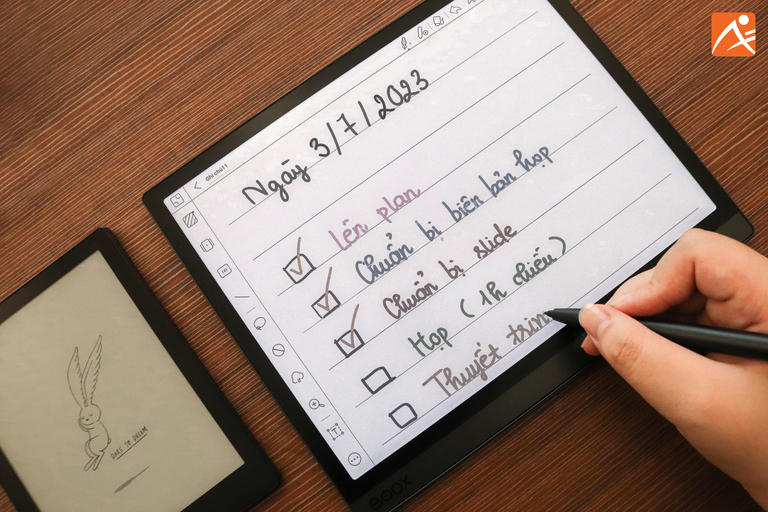 Ghi chú 1
Ngày 3/7/2023
lên plan
Chuẩn bị biên bản họp
Chuẩn bị slide
Họp (1h chiều)
Thuyết trìn
BOOX
DARE TO DREAM